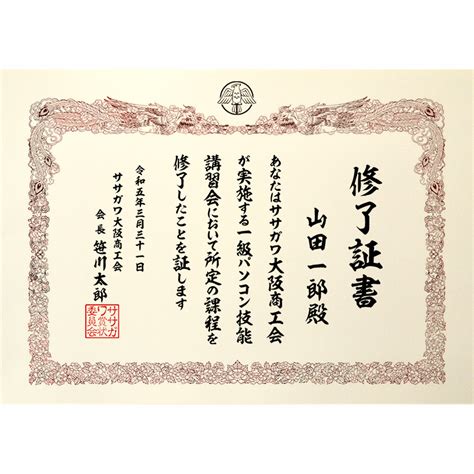 修了証書
山田一郎殿
あなたはササガワ大阪商工会
が実施する一級パソコン技能
講習会において所定の課程を
修了したことを証します
令和五年三月三十一日
ササガワ大阪商工会
会長 笹川太郎
ササガ
ワ賞状
委員会